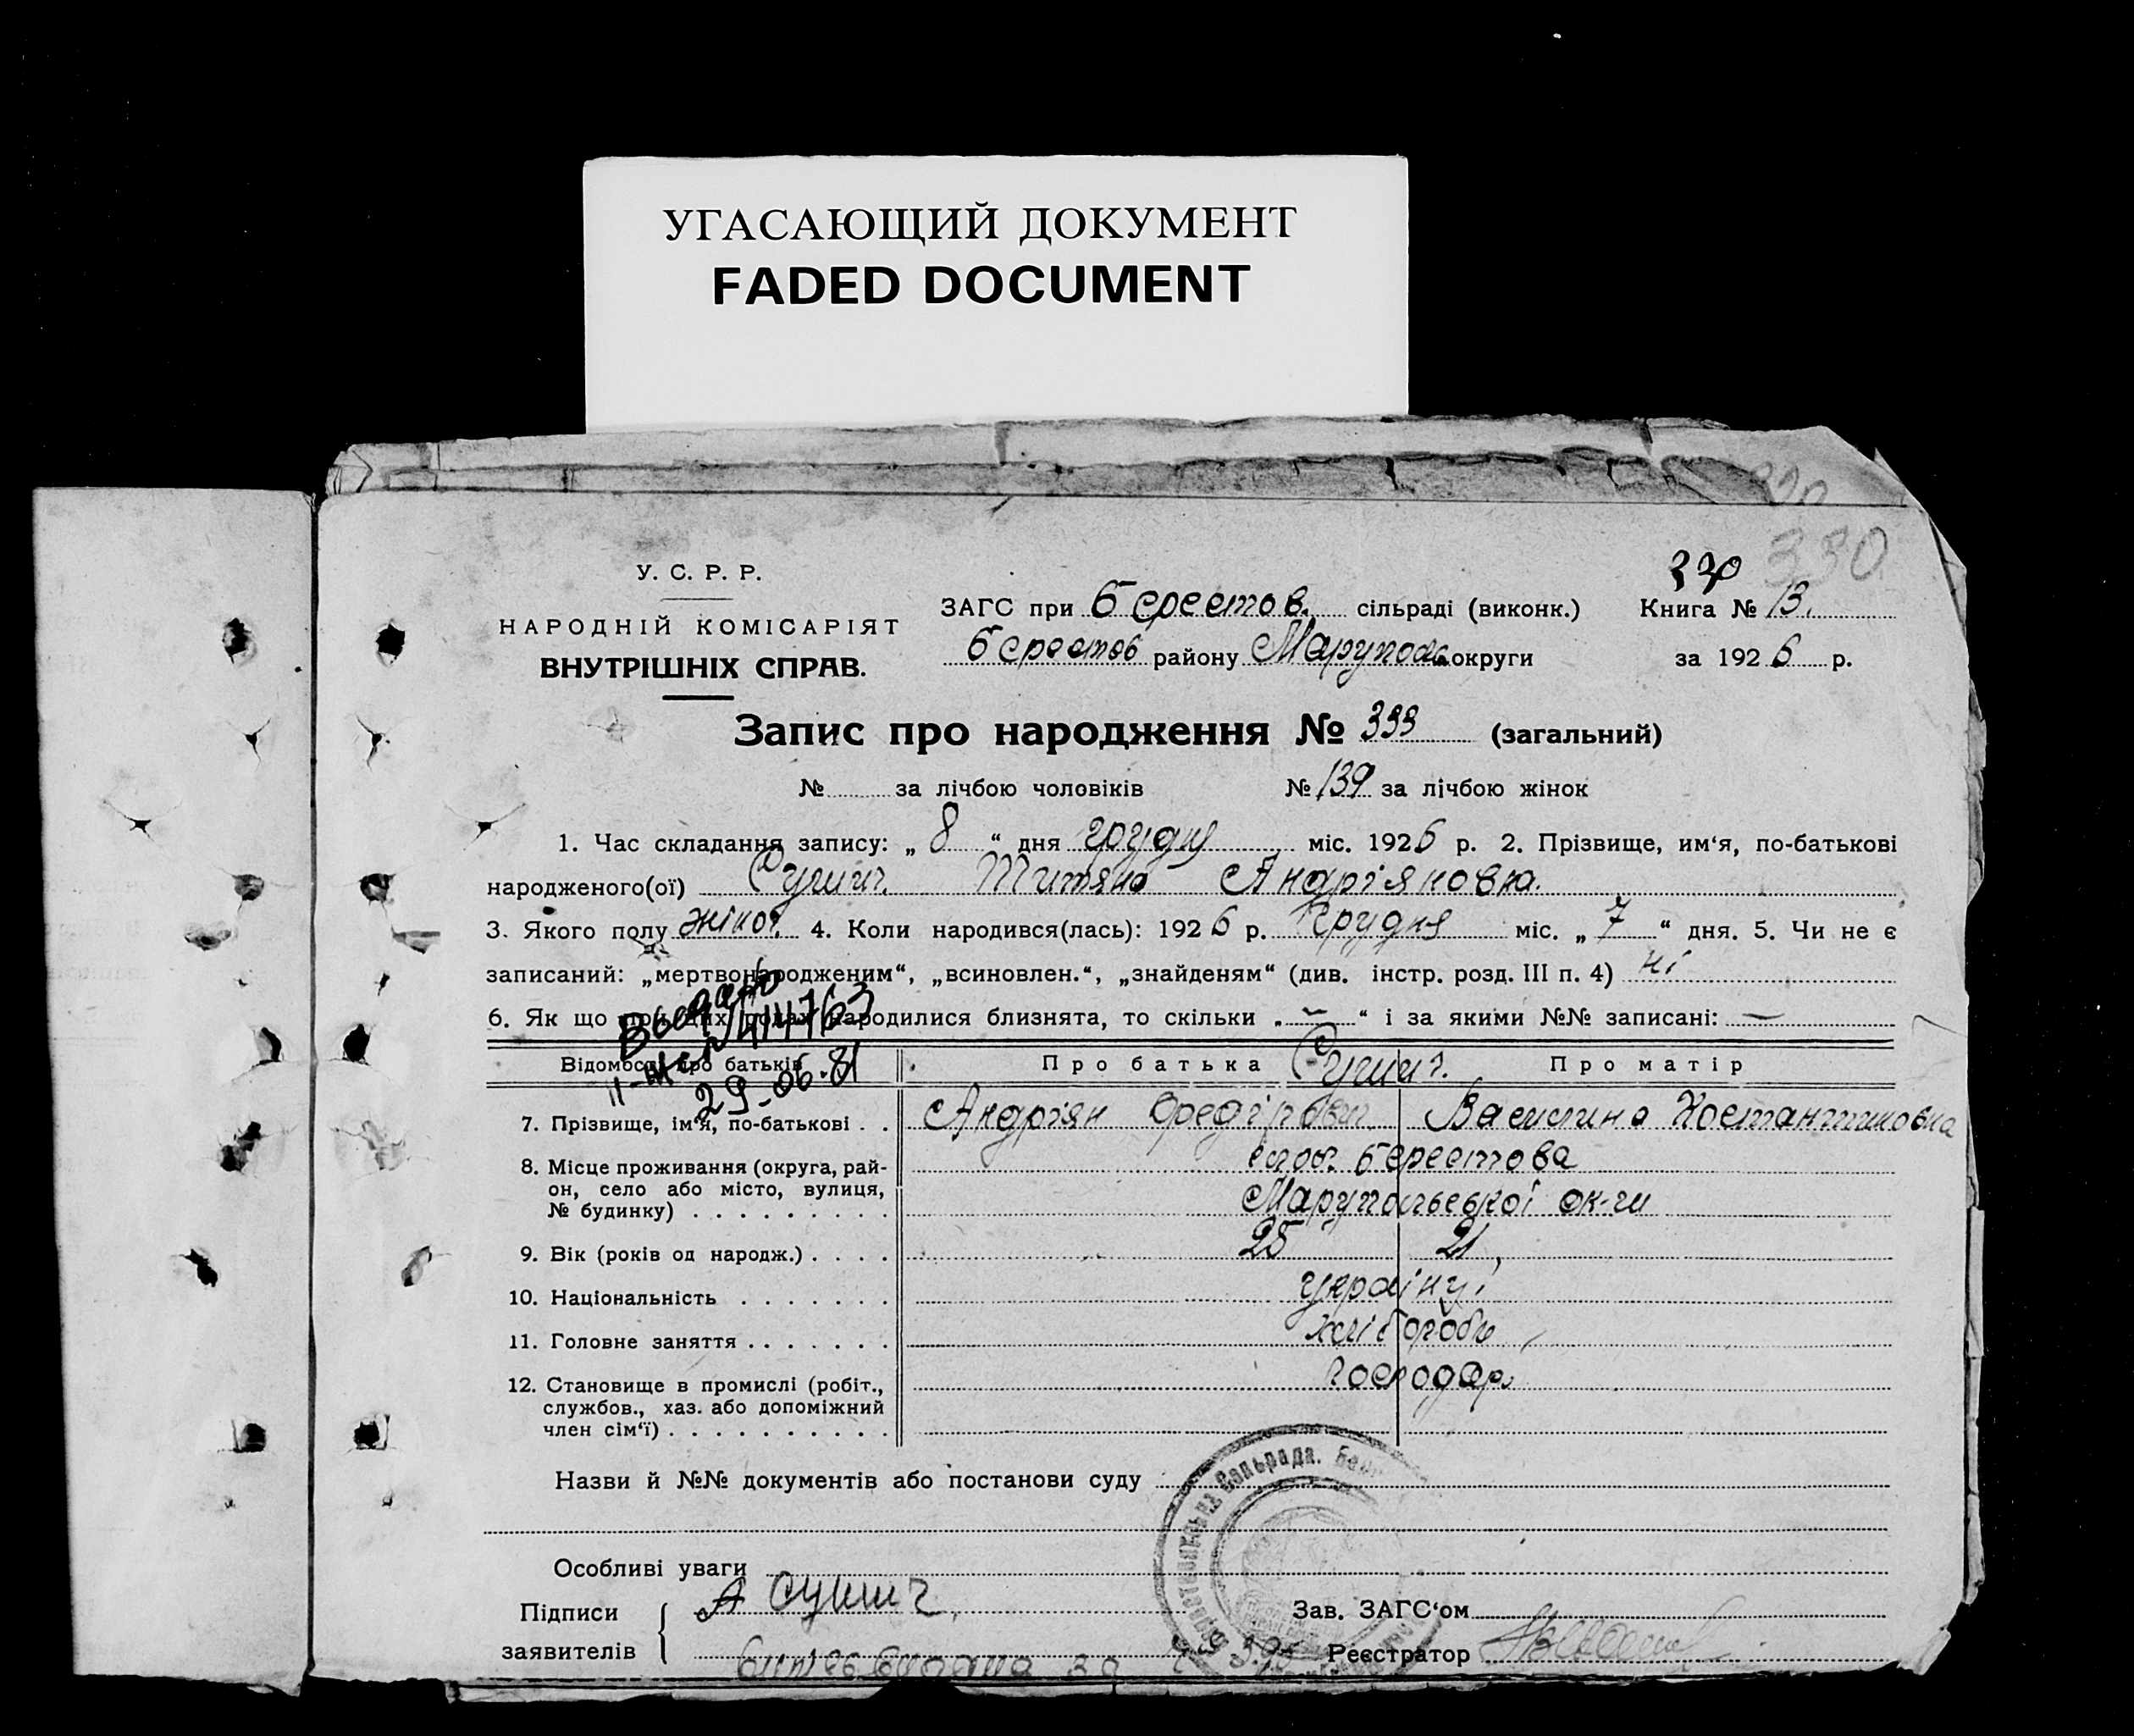 УГАСАЮЩИЙ ДОКУМЕНТ
FADED DOCUMENT
330
У. С. Р. Р.
НАРОДНІЙ КОМІСАРІЯТ
ВНУТРІШНІХ СПРАВ.
ЗАГС при Берестов. сільраді (виконк.) Книга № 13.
Берестов району Маруполь округи за 1926 р.
Запис про народження № 333 (загальний)
№ за лічбою чоловіків № 139 за лічбою жінок
1. Час складання запису: „ 8 “ дня грудня міс. 1926 р. 2. Прізвище, им‘я, по-батькові
народженого(ої) Сушич. Титяна Андріяновна.
3. Якого полу жіноч. 4. Коли народився(лась): 1926 р. Грудня міс. „ 7 “ дня. 5. Чи не є
записаний: „мертвонародженим“, „всиновлен.“, „знайденям“ (див. інстр. розд. III п. 4) ні
6. Як що при цих родах народилися близнята, то скільки „ — “ і за якими №№ записані: —
414763
29-06.81
Відомости про батьків Про батька Сушич. Про матір
7. Прізвище, ім‘я, по-батькові . . Андріян Федірович Василина Костантиновна
8. Місце проживання (округа, рай-
он, село або місто, вулиця,
№ будинку) . . . . . . . . .
Берестова
Марупольської ок-ги
9. Вік (років од народж.) . . . . 25 21
10. Національність . . . . . . . українці
11. Головне заняття . . . . . . . хлібороби
12. Становище в промислі (робіт.,
службов., хаз. або допоміжний
член сім‘ї) . . . . . . . . . .
господар.
Назви й №№ документів або постанови суду
Особливі уваги
Підписи
заявителів
А Сушич
Зав. ЗАГС‘ом
Реєстратор